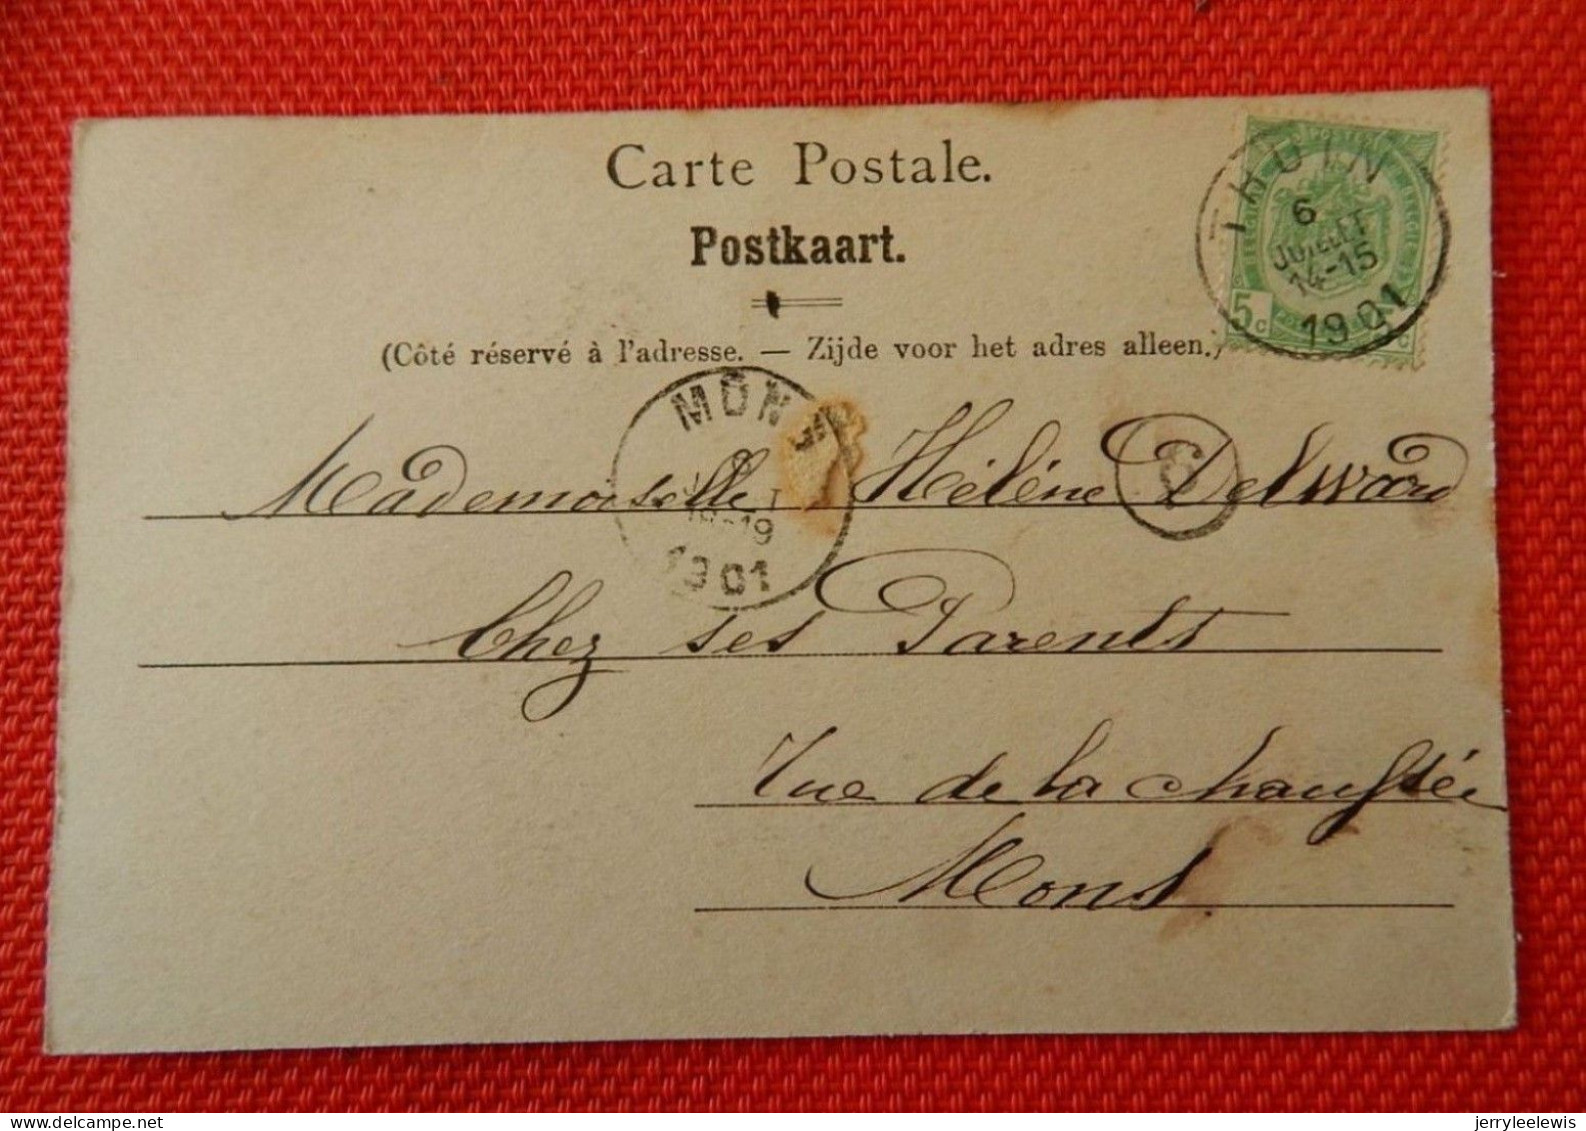 Carte Postale.
Postkaart.
(Côté réservé à l'adresse. — Zijde voor het adres alleen.)
THUIN
6
JUILLET
14-15
1901
5c
MONS
18-19
1901
6
Mademoiselle Hélène Delward
Chez ses Parents
rue de la chaussée
Mons
jerryleelewis